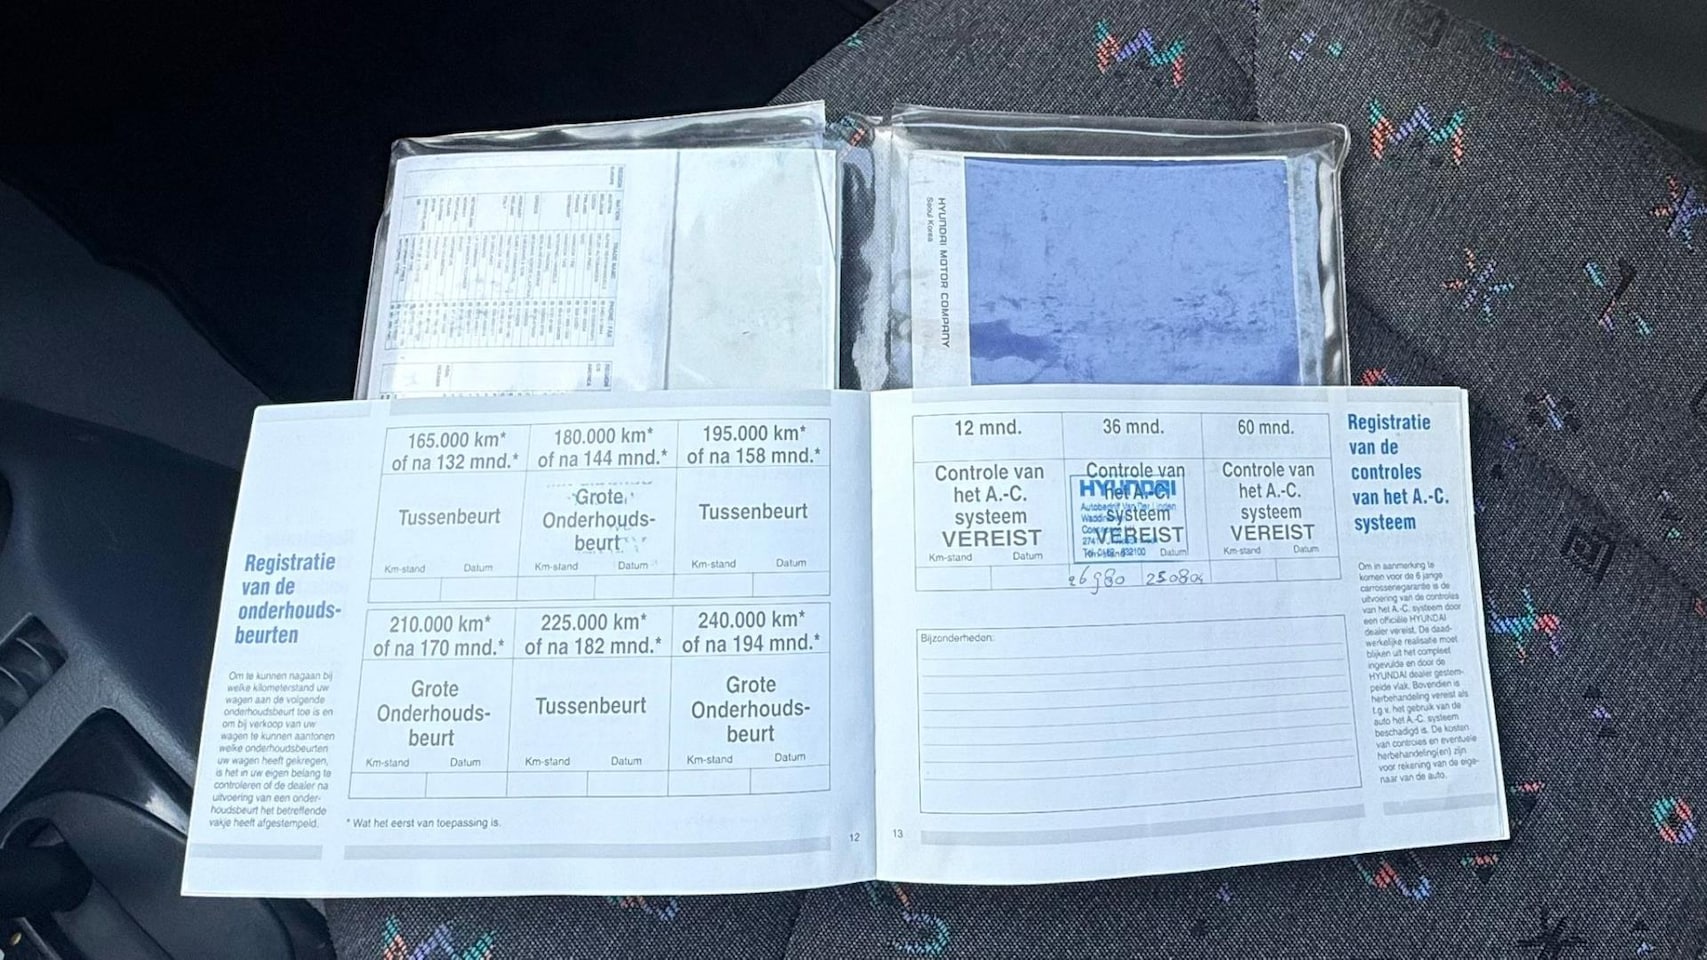 HYUNDAI MOTOR COMPANY
Seoul Korea
Registratie
van de
onderhouds-
beurten
Om te kunnen nagaan bij
welke kilometerstand uw
wagen aan de volgende
onderhoudsbeurt toe is en
om bij verkoop van uw
wagen te kunnen aantonen
welke onderhoudsbeurten
uw wagen heeft gekregen,
is het in uw eigen belang te
controleren of de dealer na
uitvoering van een onder-
houdsbeurt het betreffende
vakje heeft afgestempeld.
165.000 km*
of na 132 mnd.*
Tussenbeurt
Km-stand Datum
180.000 km*
of na 144 mnd.*
Grote
Onderhouds-
beurt
Km-stand Datum
195.000 km*
of na 158 mnd.*
Tussenbeurt
Km-stand Datum
210.000 km*
of na 170 mnd.*
Grote
Onderhouds-
beurt
Km-stand Datum
225.000 km*
of na 182 mnd.*
Tussenbeurt
Km-stand Datum
240.000 km*
of na 194 mnd.*
Grote
Onderhouds-
beurt
Km-stand Datum
* Wat het eerst van toepassing is.
12
12 mnd.
Controle van
het A.-C.
systeem
VEREIST
Km-stand Datum
36 mnd.
Controle van
het A.-C.
systeem
VEREIST
Datum
HYUNDAI
Autobedrijf Van Der Linden
26980 250804
60 mnd.
Controle van
het A.-C.
systeem
VEREIST
Km-stand Datum
Bijzonderheden:
13
Registratie
van de
controles
van het A.-C.
systeem
Om in aanmerking te
komen voor de 6 jarige
carrosseriegarantie is de
uitvoering van de controles
van het A.-C. systeem door
een officiële HYUNDAI
dealer vereist. De daad-
werkelijke realisatie moet
blijken uit het compleet
ingevulde en door de
HYUNDAI dealer gestem-
pelde vlak. Bovendien is
herbehandeling vereist als
t.g.v. het gebruik van de
auto het A.-C. systeem
beschadigd is. De kosten
van controles en eventuele
herbehandeling(en) zijn
voor rekening van de eige-
naar van de auto.